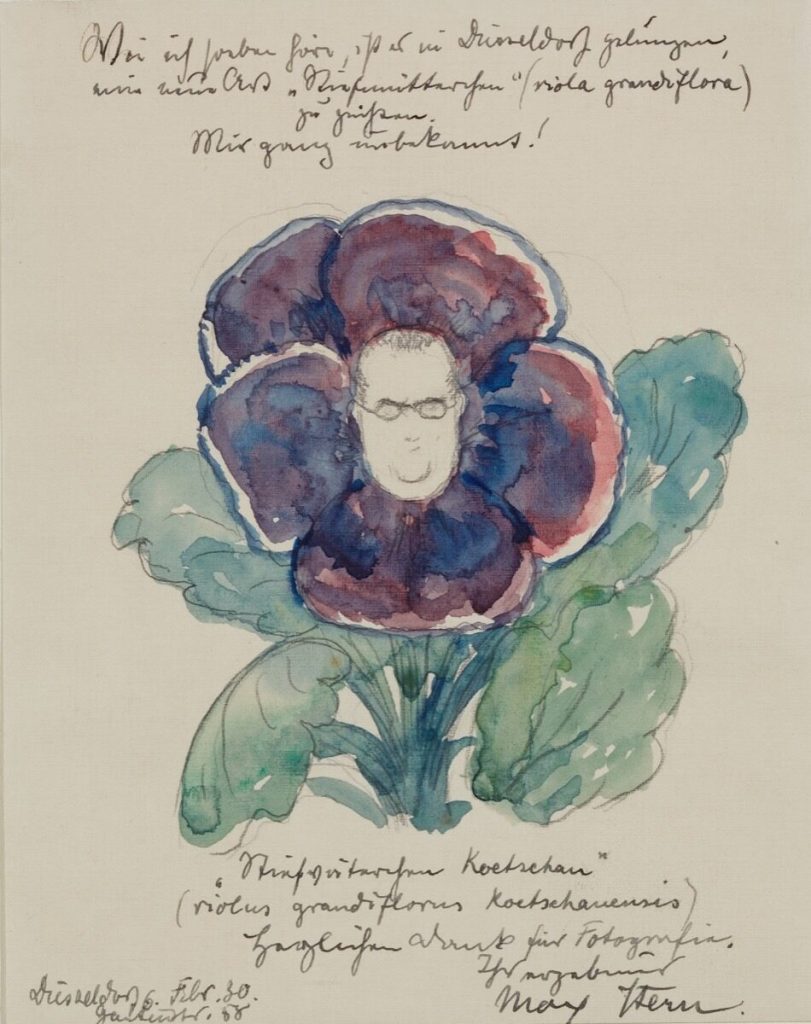 Wie ich soeben höre, ist es in Düsseldorf gelungen,
eine neue Art „Stiefmütterchen“ (viola grandiflora)
zu züchten.
Mir ganz unbekannt!
„Stiefväterchen Koetschau“
(violus grandiflorus Koetschauensis)
Herzlichen Dank für Fotografie.
Ihr ergebener
Max Stern.
Düsseldorf 6. Febr. 30.
58